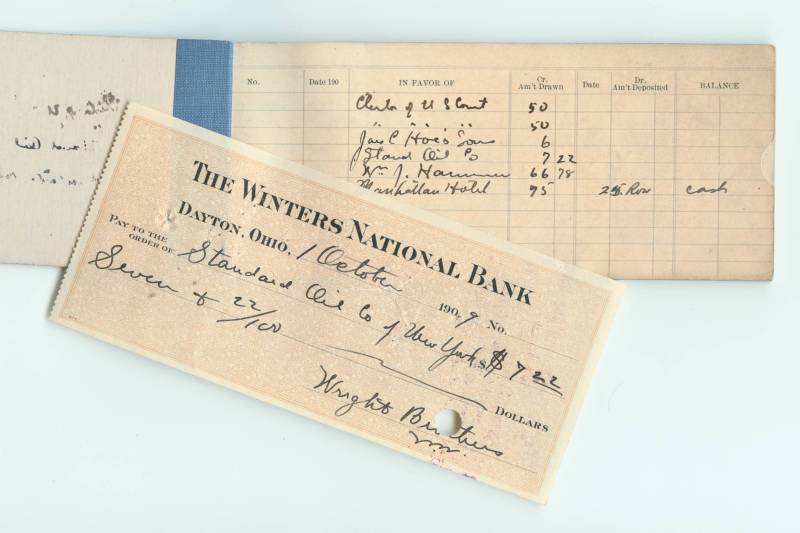 No. Date 190 IN FAVOR OF Cr. Am't Drawn Date Dr. Am't Deposited BALANCE
Clerk of U S Court 50
" " " " " 50
Jas C Hoe's Sons 6
Stand Oil Co 7 22
Wm J. 66 78
Manhattan Hotel 75 cash
THE WINTERS NATIONAL BANK
DAYTON, OHIO, 1 October 1909 No.
PAY TO THE ORDER OF Standard Oil Co of New York $ $ 7 22
Seven + 22/100 DOLLARS
Wright Brothers